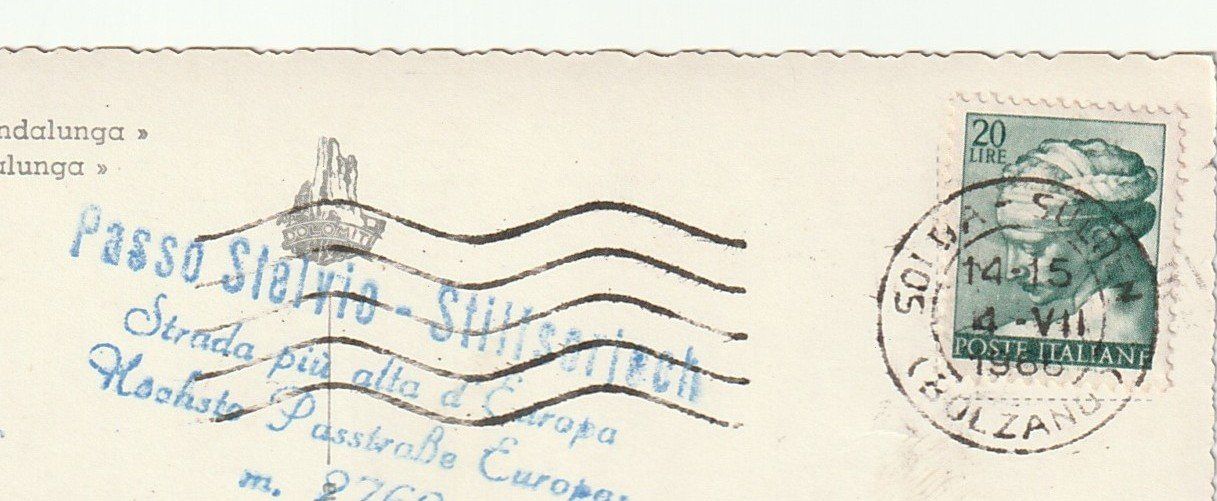 ndalunga »
alunga »
DOLOMITI
Passo Stelvio - Stilfserjoch
Strada più alta d'Europa
Höchste Passtraße Europas
m.
20
LIRE
POSTE ITALIANE
SOLDA - SULDEN
14-15
14 -VII
1966
(BOLZANO)